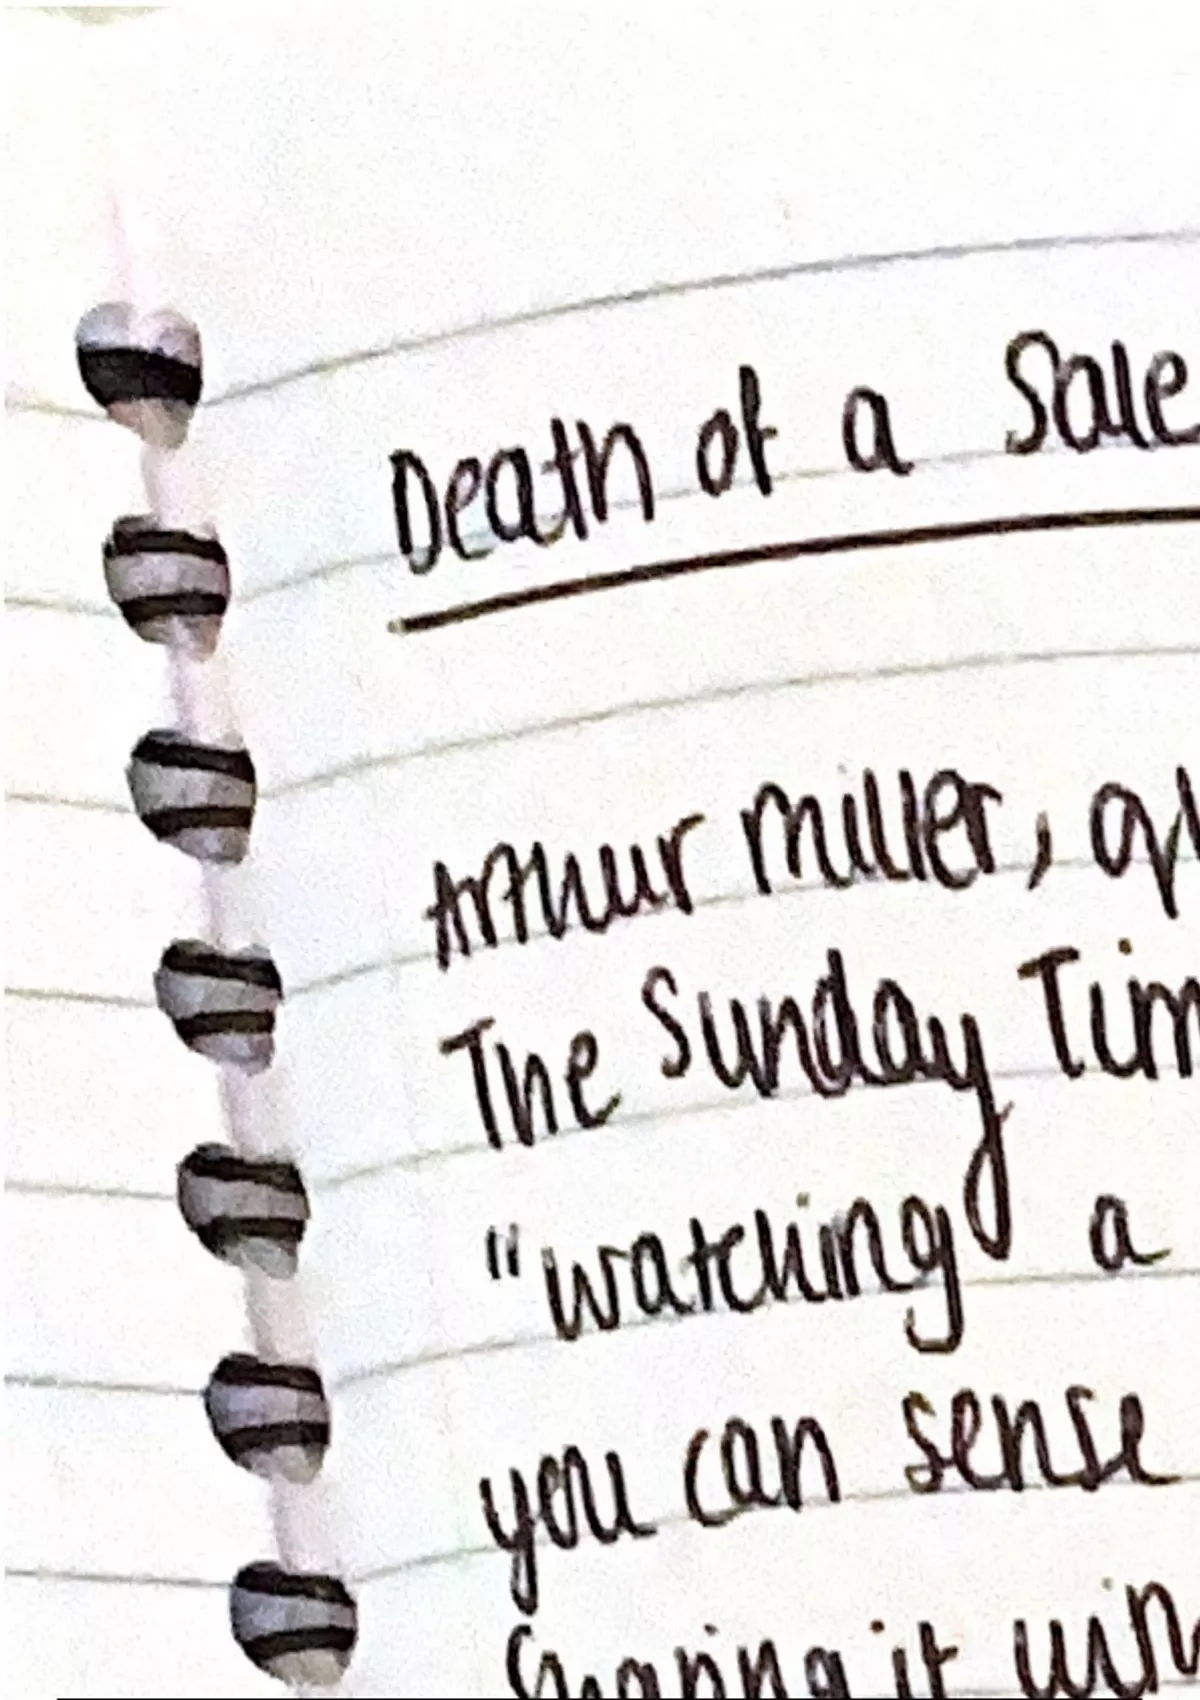 Death of a Sale
Arthur Miller,
The Sunday Tim
"watching a
you can sense
sharing it with